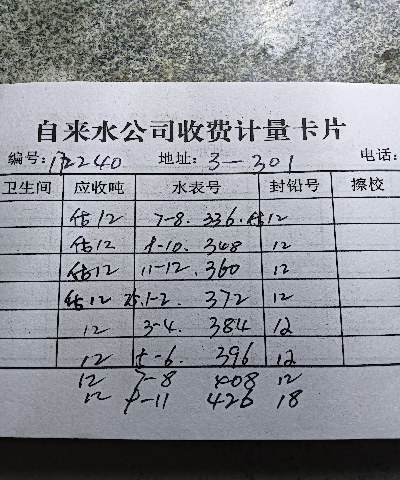 自来水公司收费计量卡片
编号: 12240 地址: 3-301 电话:
卫生间 应收吨 水表号 封铅号 擦校
估12 7-8. 336. 估12
估12 8-10. 348 12
估12 11-12. 360 12
估12 25.1-2. 372 12
12 3-4. 384 12
12 5-6. 396 12
12 7-8 408 12
12 9-11 426 18